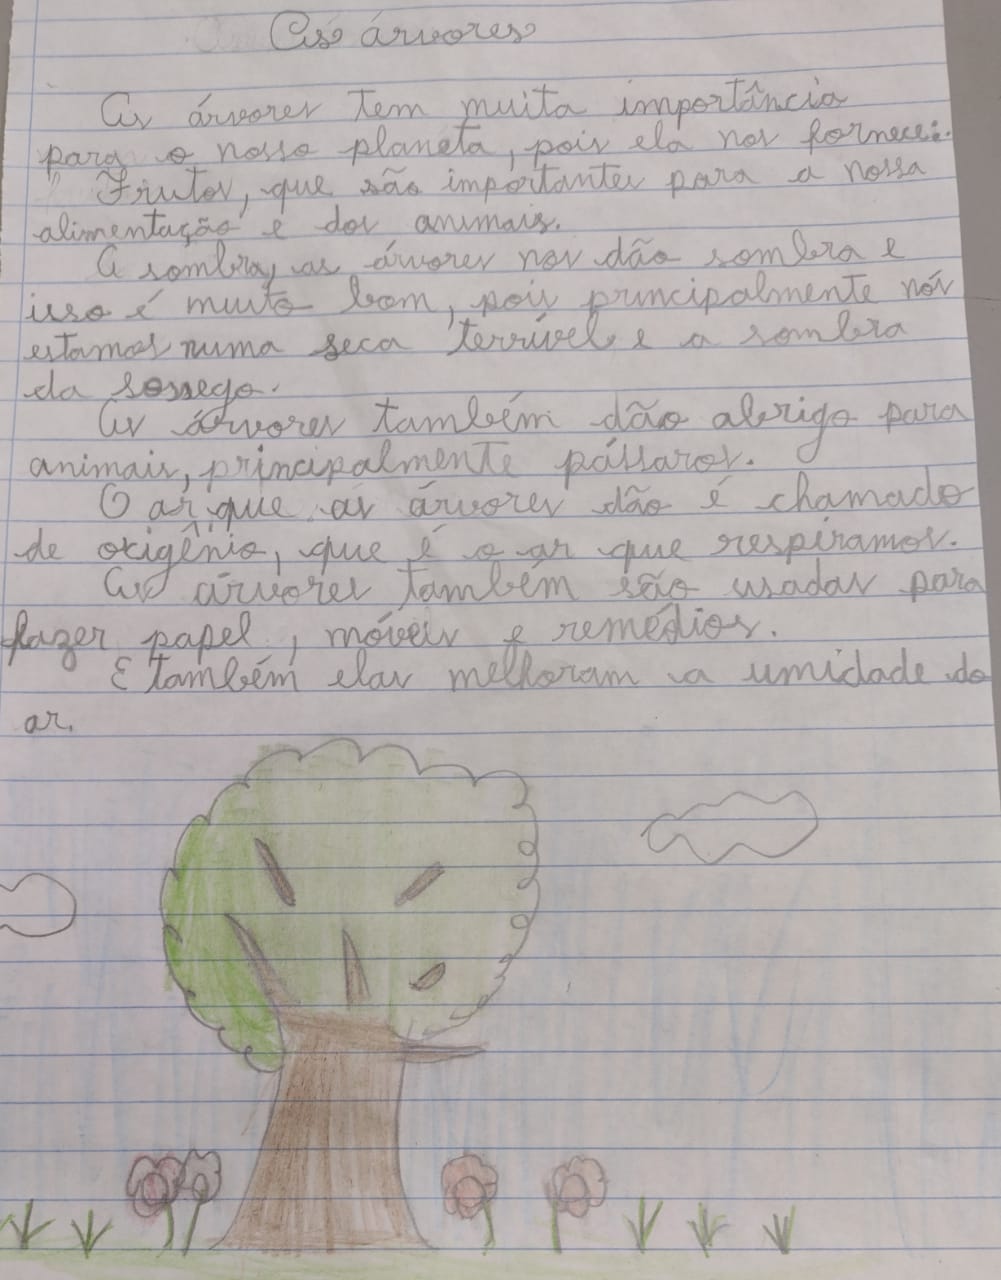 As árvores
As árvores tem muita importância
para o nosso planeta, pois ela nos fornece:
Frutos, que são importantes para a nossa
alimentação e dos animais.
A sombra, as árvores nos dão sombra e
isso é muito bom, pois principalmente nós
estamos numa seca terrível e a sombra
da sossego.
As árvores também dão abrigo para
animais, principalmente pássaros.
O ar que as árvores dão é chamado
de oxigênio, que é o ar que respiramos.
As árvores também são usadas para
fazer papel, móveis e remédios.
E também elas melhoram a umidade do
ar.